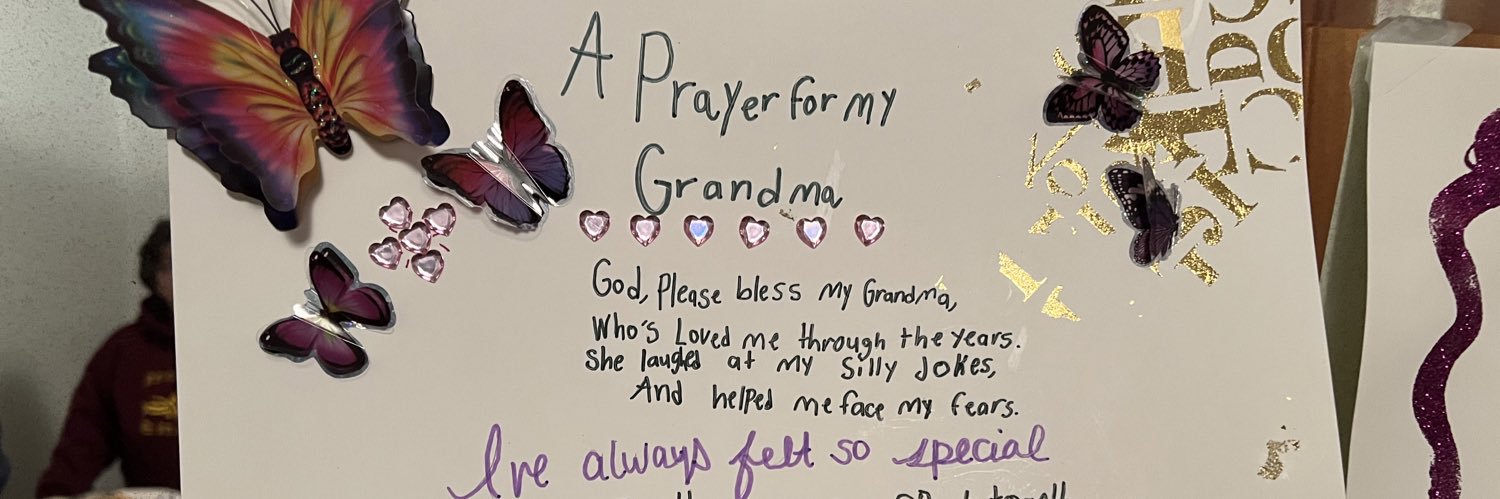 A Prayer for my
Grandma
God, Please bless my Grandma,
Who's Loved me through the years.
She laughed at my silly Jokes,
And helped me face my fears.
I've always felt so special